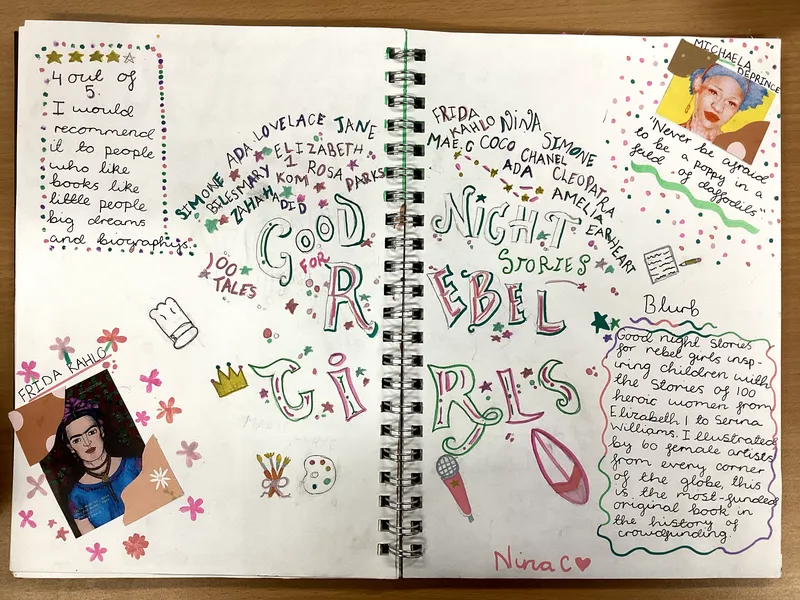 4 out of
5.
I would
recommend
it to people
who like
books like
little people
big dreams
and biographys.
FRIDA KAHLO
SIMONE BILES
ADA LOVELACE
JANE
MARY KOM
ELIZABETH 1
ROSA PARKS
ZAHA HADID
100 TALES
FRIDA KAHLO
NINA SIMONE
MAE.C
COCO CHANEL
ADA
CLEOPATRA
AMELIA EARHEART
GOOD NIGHT
STORIES
FOR
REBEL
GIRLS
MICHAELA DEPRINCE
"Never be afraid
to be a poppy in a
feild of daffodils"
Blurb
Good night Stories
for rebel girls insp-
iring children with
the stories of 100
heroic women from
Elizabeth I to Serena
Williams. Illustrated
by 60 female artists
from every corner
of the globe, this
is the most-funded
original book in
the history of
crowdfunding.
Nina C